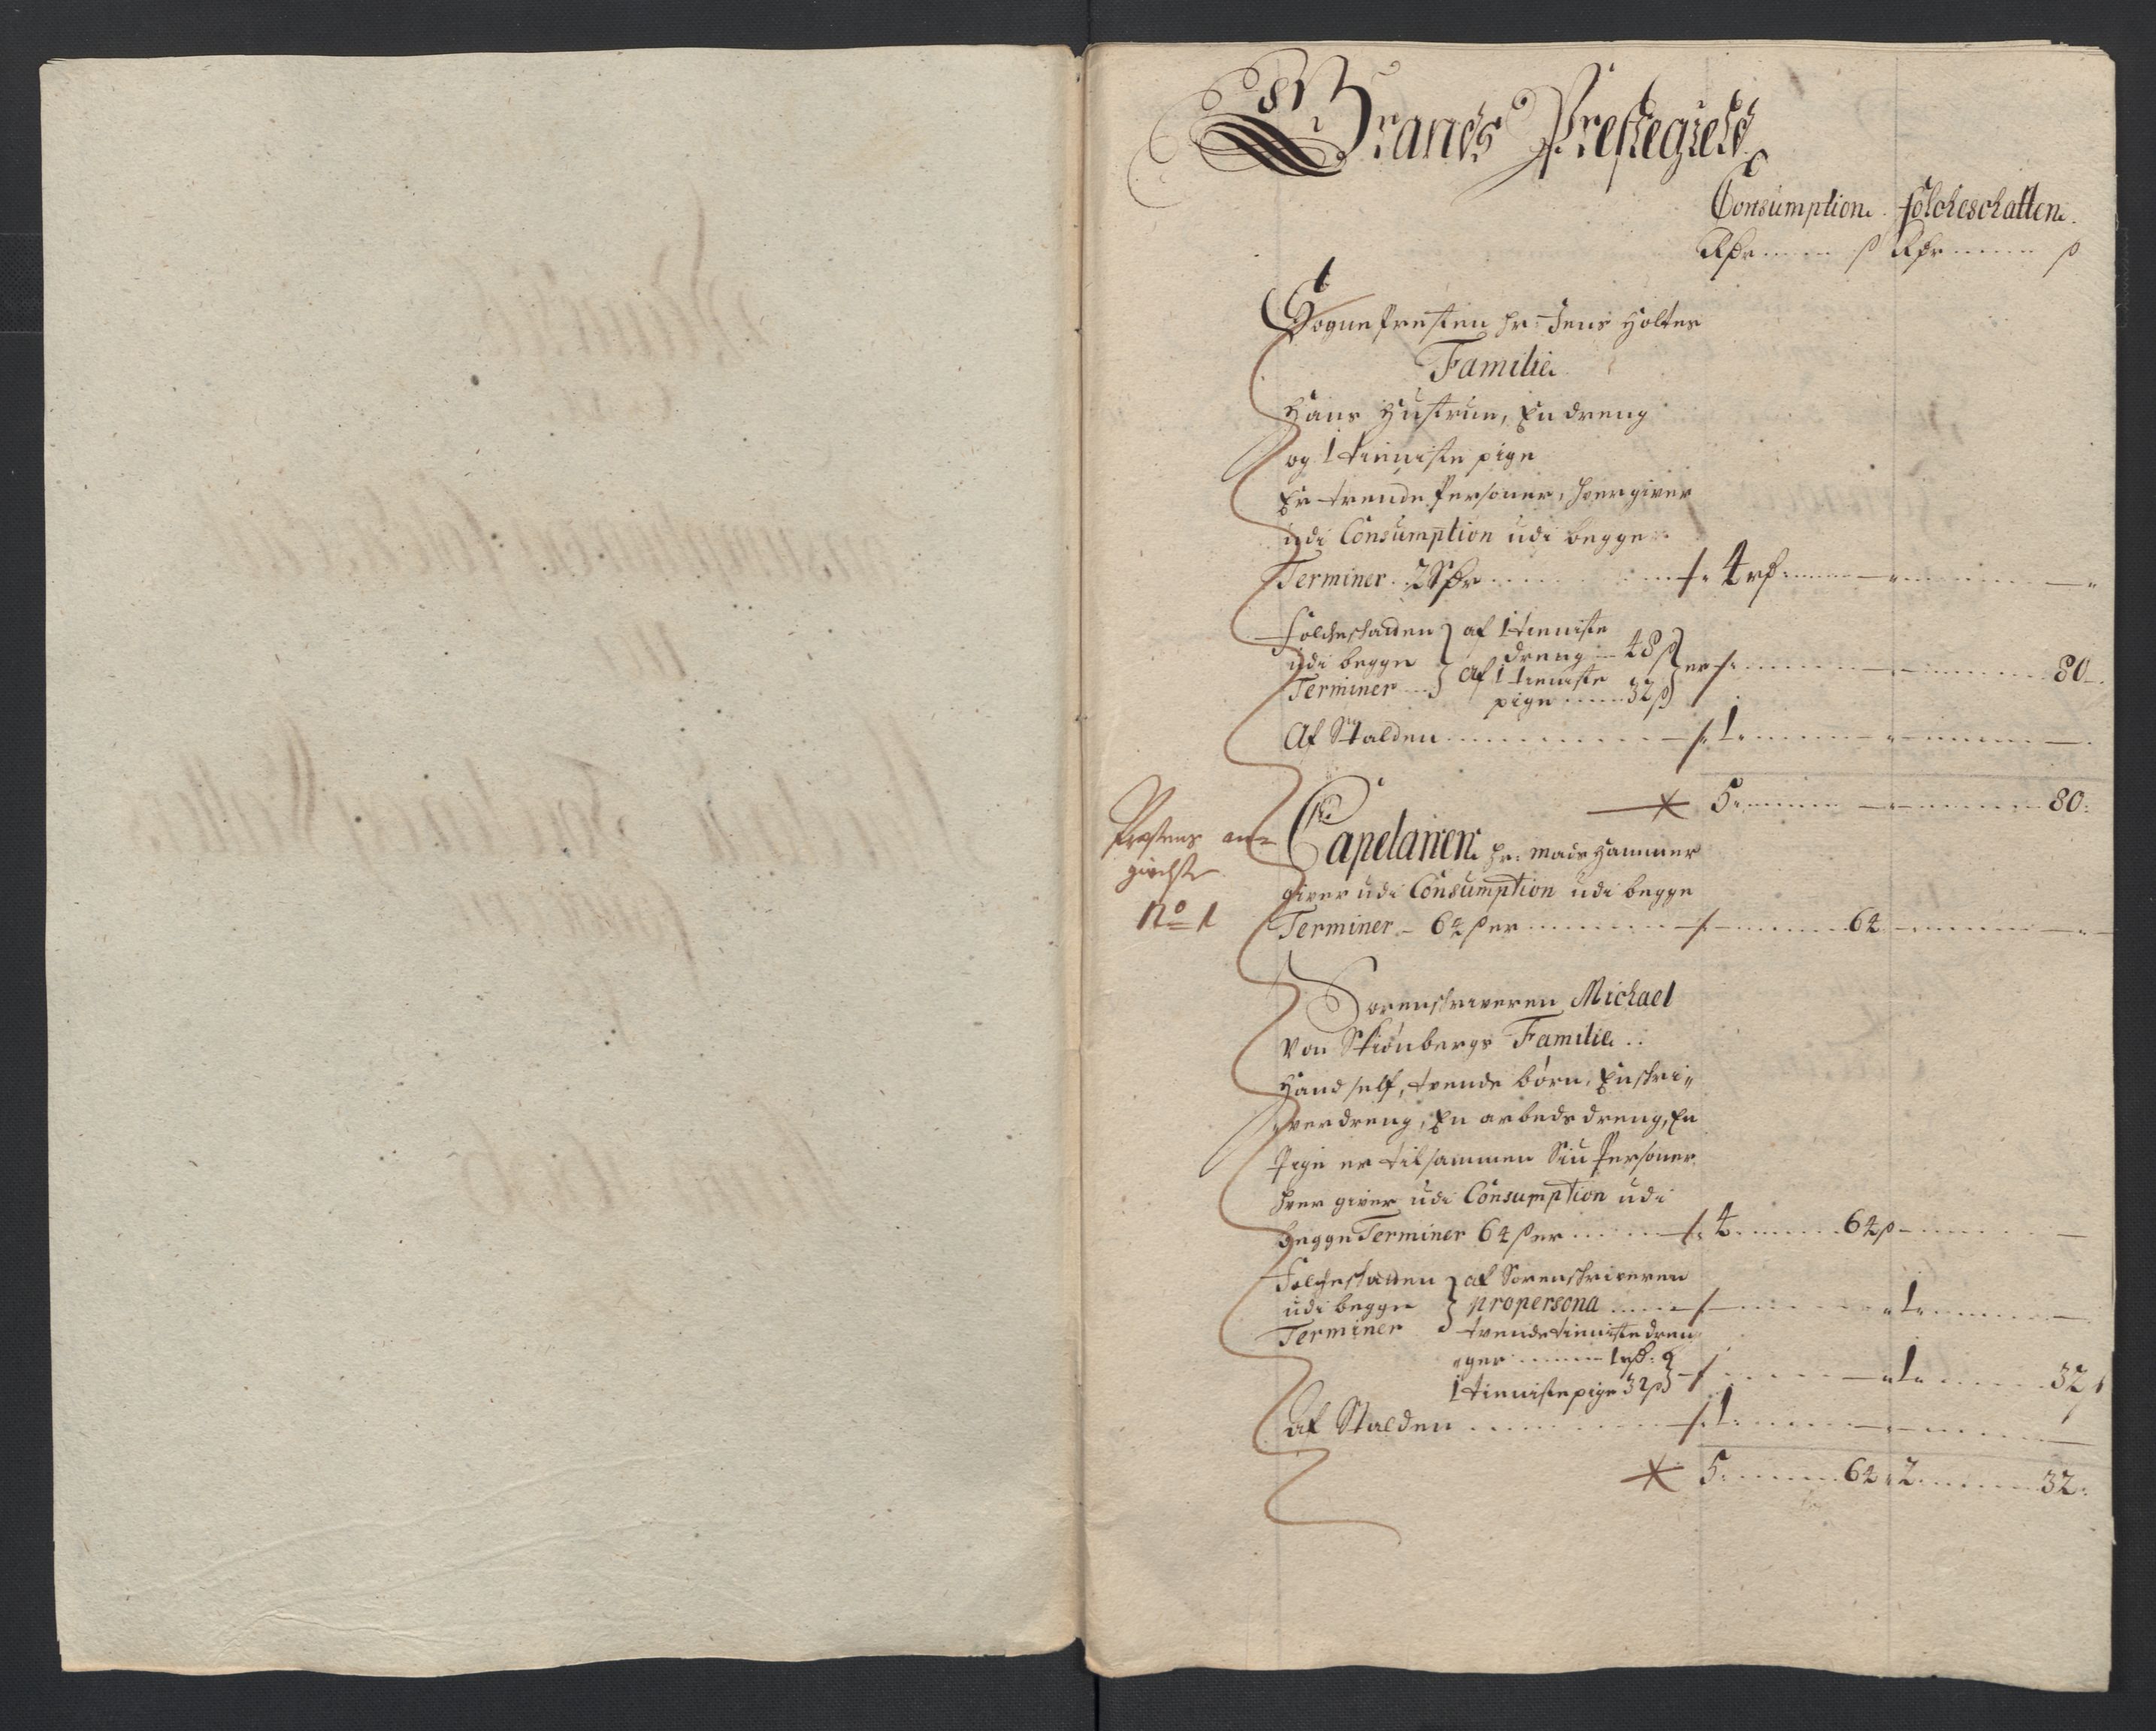 Brands Prestegield
Consumption. folcheschatten.
Rdr ß Rdr ß
1
Sognepresten hr: Jens Holtes
Familie
Hans Hustrue, En dreng
og 1 tieniste pige
Er trende Personer, hver giver
udi Consumption udi begge
Terminer 2 Rdr 4 rd
Folcheskatten udi begge Terminer
af 1 tieniste dreng 48 ß
af 1 tieniste pige 32 ß er 80
Af Stalden 1
5 80:
Præstens an=
givelse
No 1
Capelanen hr: Mads Hammer
giver udi Consumption udi begge
Terminer 64 ß er 64
Sorenskriveren Michael
Von Skiønbergs Familie
Hand self, tvende børn, En skri„
verdreng, En arbeds dreng, En
Pige er tilsammen Siu Personer
hver giver udi Consumption udi
begge Terminer 64 ß er 4 64 ß
Folcheskatten udi begge Terminer
af Sorenskriveren
propersona 1
tvende tieniste dren
ger 1 rd:
1 tieniste pige 32 ß 1 32
Af Stalden 1
5 64 2 32: